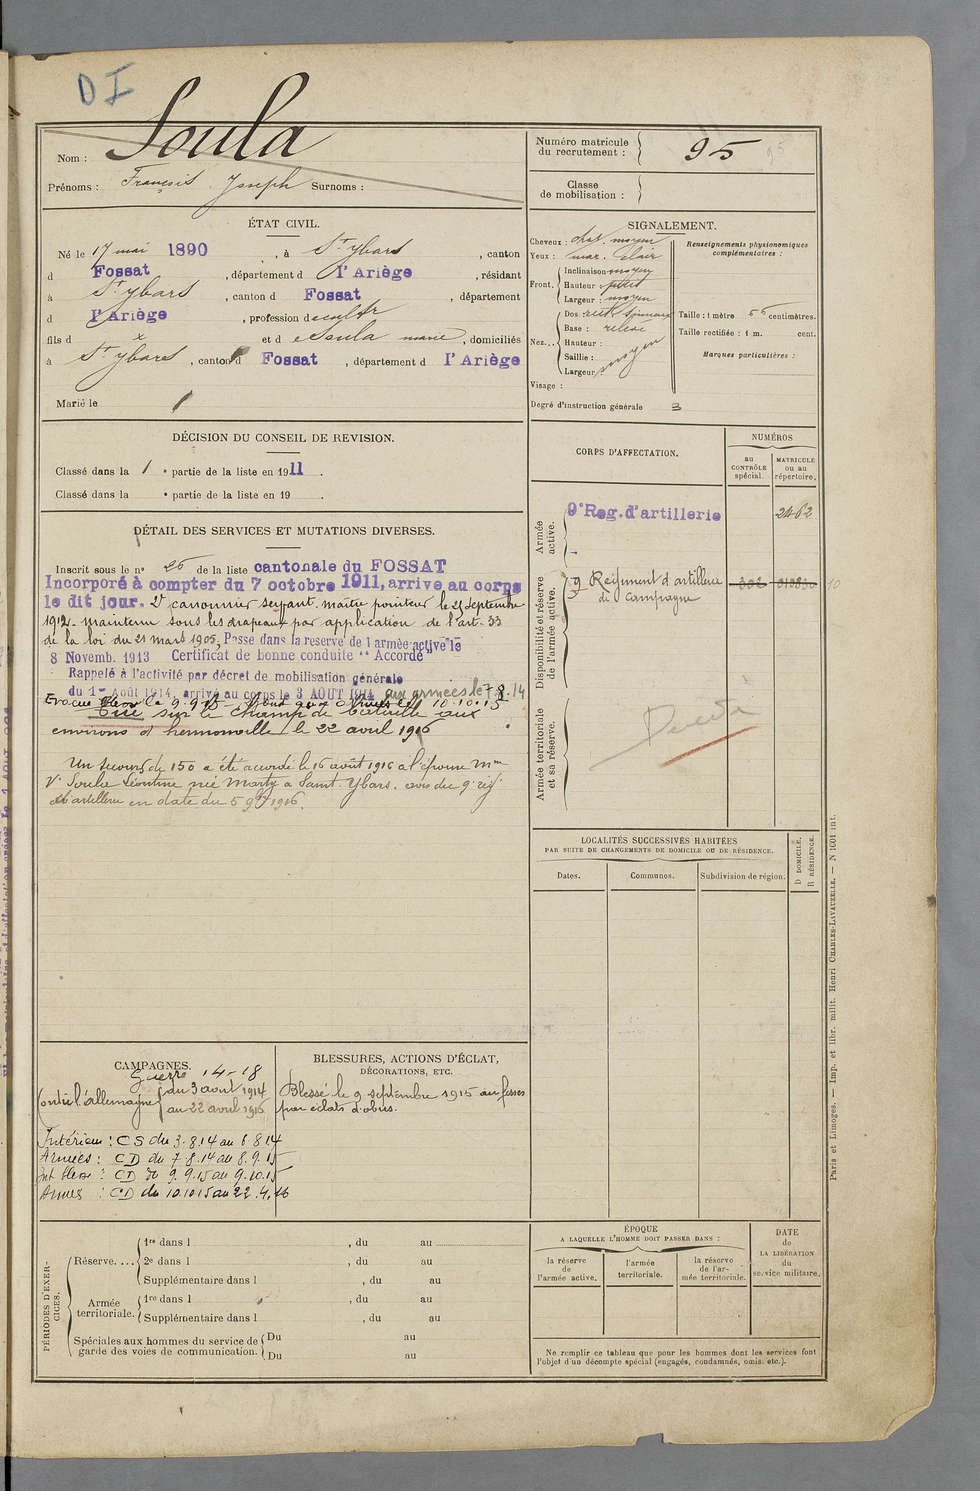 DI
Nom : Soula
Prénoms : François Joseph Surnoms :
Numéro matricule du recrutement : 95
Classe de mobilisation :
ÉTAT CIVIL.
Né le 17 mai 1890, à St Ybars, canton
d Fossat, département d l'Ariège, résidant
à St Ybars, canton d Fossat, département
d l'Ariège, profession de cultr
fils d x et d Soula marie, domiciliés
à St Ybars, canton d Fossat, département d l'Ariège
Marié le /
SIGNALEMENT.
Cheveux : chat. moyen
Yeux : mar. clair
Front. Inclinaison moyen
Hauteur : petit
Largeur : moyen
Nez... Dos : rect. sinueux
Base : relevé
Hauteur :
Saillie : moyen
Largeur
Visage :
Degré d'instruction générale 3
Renseignements physionomiques complémentaires :
Taille : 1 mètre centimètres.
Taille rectifiée : 1 m. cent.
Marques particulières :
DÉCISION DU CONSEIL DE REVISION.
Classé dans la 1 e partie de la liste en 1911.
Classé dans la e partie de la liste en 19 .
DÉTAIL DES SERVICES ET MUTATIONS DIVERSES.
Inscrit sous le n° 26 de la liste cantonale du FOSSAT
Incorporé à compter du 7 octobre 1911, arrive au corps
le dit jour. 2e canonnier servant. maître pointeur le 25 septembre
1912. maintenu sous les drapeaux par application de l'art. 33
de la loi du 21 mars 1905, Passe dans la reserve de l'armée active le
8 Novemb. 1913 Certificat de bonne conduite "Accordé"
Rappelé à l'activité par décret de mobilisation générale
du 1er Août 1914, arrivé au corps le 3 AOUT 1914 aux armées le 7-8-14
Evacué blessé le 9.9.15 10.10.15
Tué sur le champ de bataille aux
environs d'hermonville le 22 avril 1916
Un secours de 150 a été accordé le 16 août 1916 à l'épouse Mme
Ve Soula Léontine née Marty à Saint-Ybars. avis du 9e rég
d'artillerie en date du 5 9bre 1916.
CORPS D'AFFECTATION.
NUMÉROS
au CONTRÔLE spécial.
MATRICULE ou au répertoire.
Armée active.
9e Reg. d'artillerie 2462
Disponibilité et réserve de l'armée active.
9 Régiment d'artillerie
de Campagne
Armée territoriale et sa réserve.
Décédé
LOCALITÉS SUCCESSIVES HABITÉES
PAR SUITE DE CHANGEMENTS DE DOMICILE OU DE RÉSIDENCE.
Dates. Communes. Subdivision de région.
D DOMICILE.
R RÉSIDENCE.
CAMPAGNES.
Guerre 14-18
Contre l'allemagne du 3 août 1914
au 22 avril 1916
Intérieur : CS du 3.8.14 au 6.8.14
Armées : CD du 7.8.14 au 8.9.15
Int bless : CD du 9.9.15 au 9.10.15
Armées : CD du 10.10.15 au 22.4.16
BLESSURES, ACTIONS D'ÉCLAT,
DÉCORATIONS, ETC.
Blessé le 9 septembre 1915 aux fesses
par éclats d'obus.
PÉRIODES D'EXERCICES.
Réserve.... 1re dans l , du au
2e dans l , du au
Supplémentaire dans l , du au
Armée territoriale. 1re dans l , du au
Supplémentaire dans l , du au
Spéciales aux hommes du service de garde des voies de communication. Du au
Du au
ÉPOQUE
A LAQUELLE L'HOMME DOIT PASSER DANS :
la réserve de l'armée active.
l'armée territoriale.
la réserve de l'armée territoriale.
DATE de LA LIBÉRATION du service militaire.
Ne remplir ce tableau que pour les hommes dont les services font
l'objet d'un décompte spécial (engagés, condamnés, omis. etc.).
Paris et Limoges. — Imp. et libr. milit. Henri CHARLES-LAVAUZELLE. — N 1001 int.